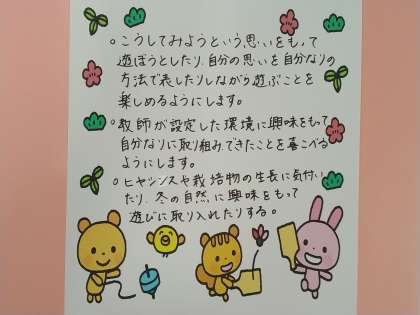 ○こうしてみようという思いをもって
遊ぼうとしたり、自分の思いを自分なりの
方法で表したりしながら遊ぶことを
楽しめるようにします。
○教師が設定した環境に興味をもって
自分なりに取り組み、できたことを喜こべる
ようにします。
○ヒヤシンスや栽培物の生長に気付い
たり、冬の自然に興味をもって
遊びに取り入れたりする。